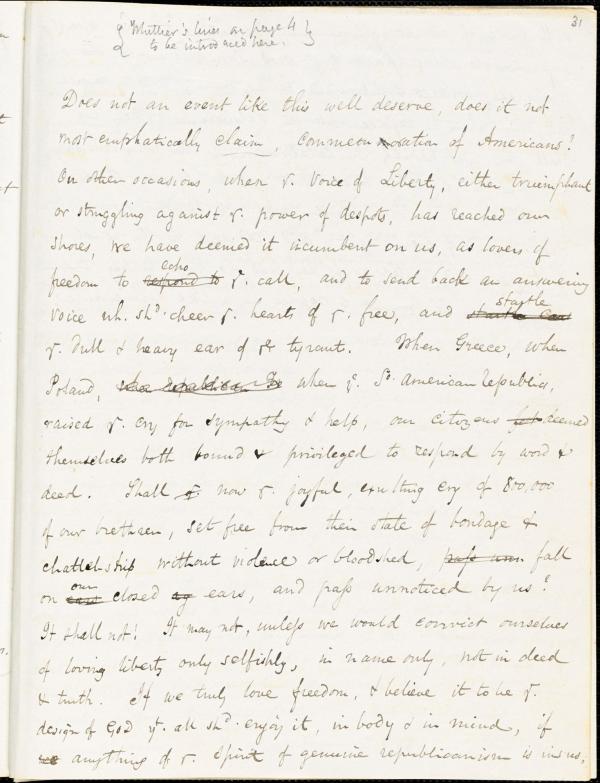 31
{Whittier's lines on page 4
to be introduced here.}
Does not an event like this well deserve, does it not
most emphatically claim, commemoration of Americans?
On other occasions, when ye. Voice of Liberty, either triumphant
or struggling against ye. power of despots, has reached our
shores, we have deemed it incumbent on us, as lovers of
echo
freedom to respond to ye. call, and to send back an answering
startle
voice wh. shd. cheer ye. hearts of ye. free, and startle ear
ye. dull & heavy ear of ye tyrant. When Greece, when
Poland, when republican Fr when ye. So. American Republics,
raised ye. cry for sympathy & help, our citizens felt deemed
themselves both bound & privileged to respond by word &
deed. Shall ye now ye. joyful, exulting cry of 800,000
of our brethren, set free from their state of bondage &
chattelship without violence or bloodshed, pass unn fall
our
on ears closed ears, and pass unnoticed by us?
It shall not! It may not, unless we would convict ourselves
of loving liberty only selfishly, in name only, not in deed
& truth. If we truly love freedom, & believe it to be ye.
design of God yt. all shd. enjoy it, in body & in mind, if
we anything of ye. spirit of genuine republicanism is in us,